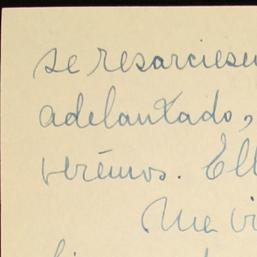 se resarciesen
adelantado,
verémos. Ell
Me vi